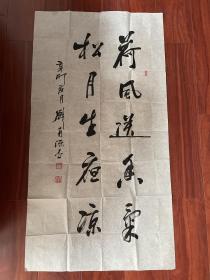 荷風送香氣
松月生夜涼
辛卯